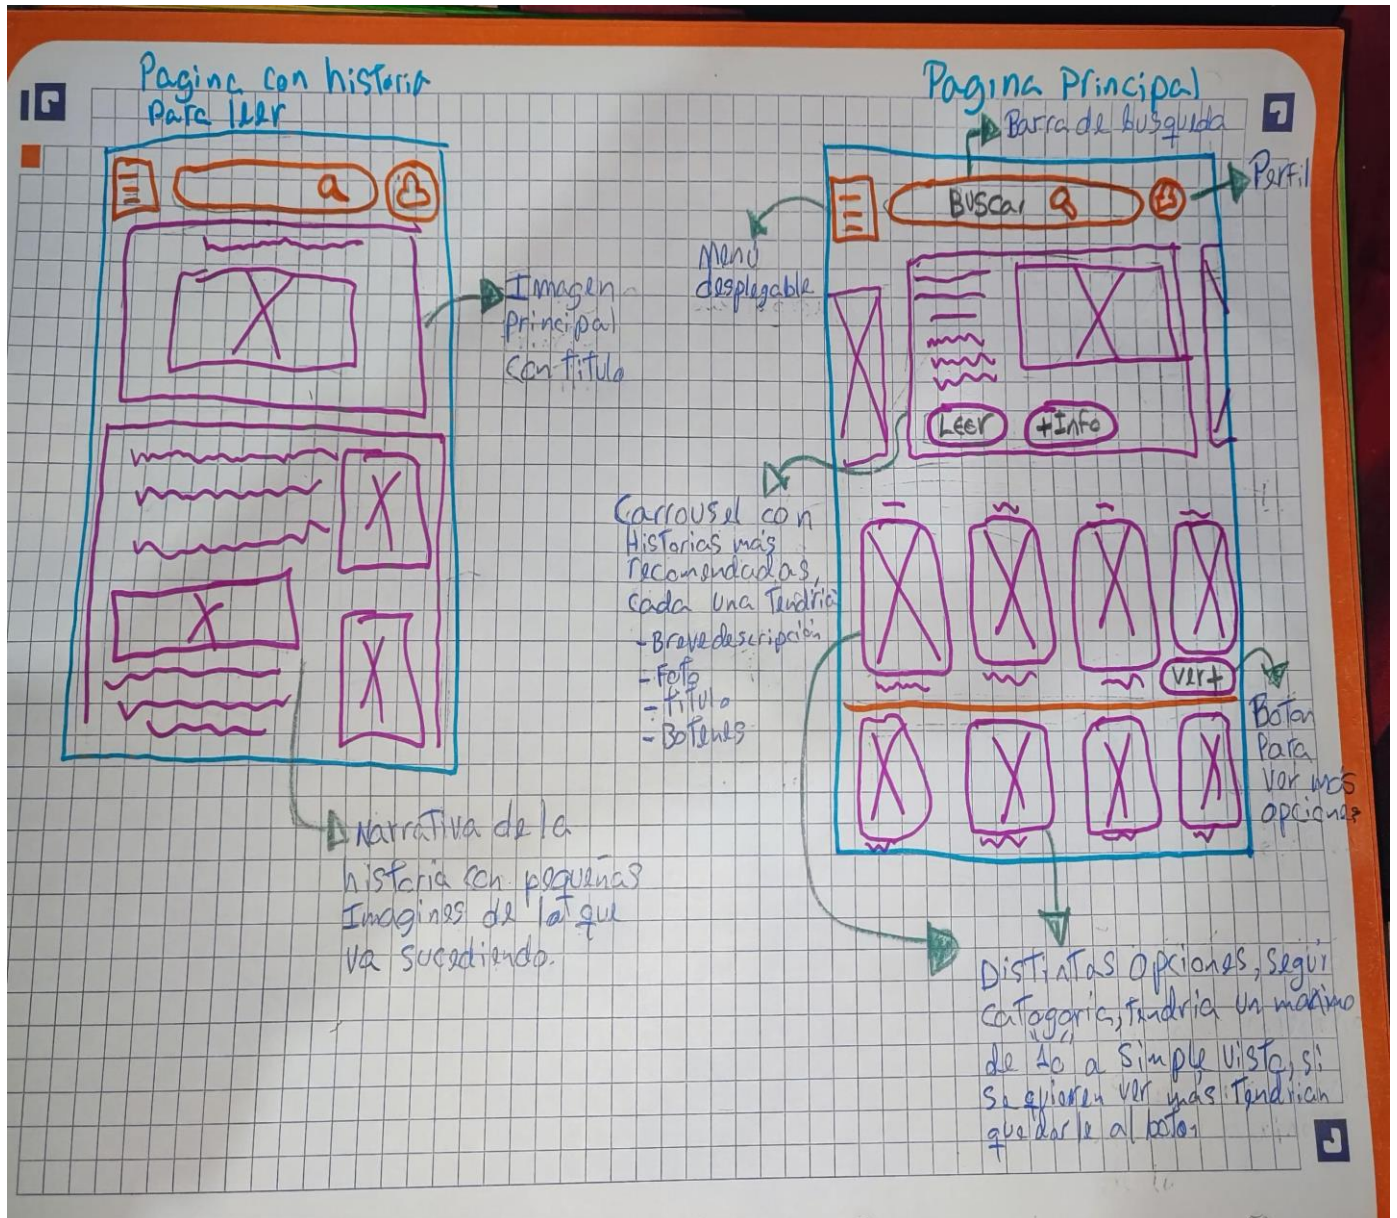 Pagina con historia
Para leer
Imagen
principal
con titulo
Narrativa de la
historia con pequeñas
Imagines de lo que
va sucediendo.
Pagina Principal
Barra de busqueda
Perfil
Buscar
Menú
desplegable
Leer
+Info
Carrousel con
Historias más
recomendadas,
cada una Tendria
- Breve descripción
- Foto
- titulo
- Botones
ver+
Boton
Para
ver más
opciones
Distintas opciones, segun
categoria, tendria un maximo
de "10" a simple vista, si
se quieren ver más Tendrian
que darle al boton